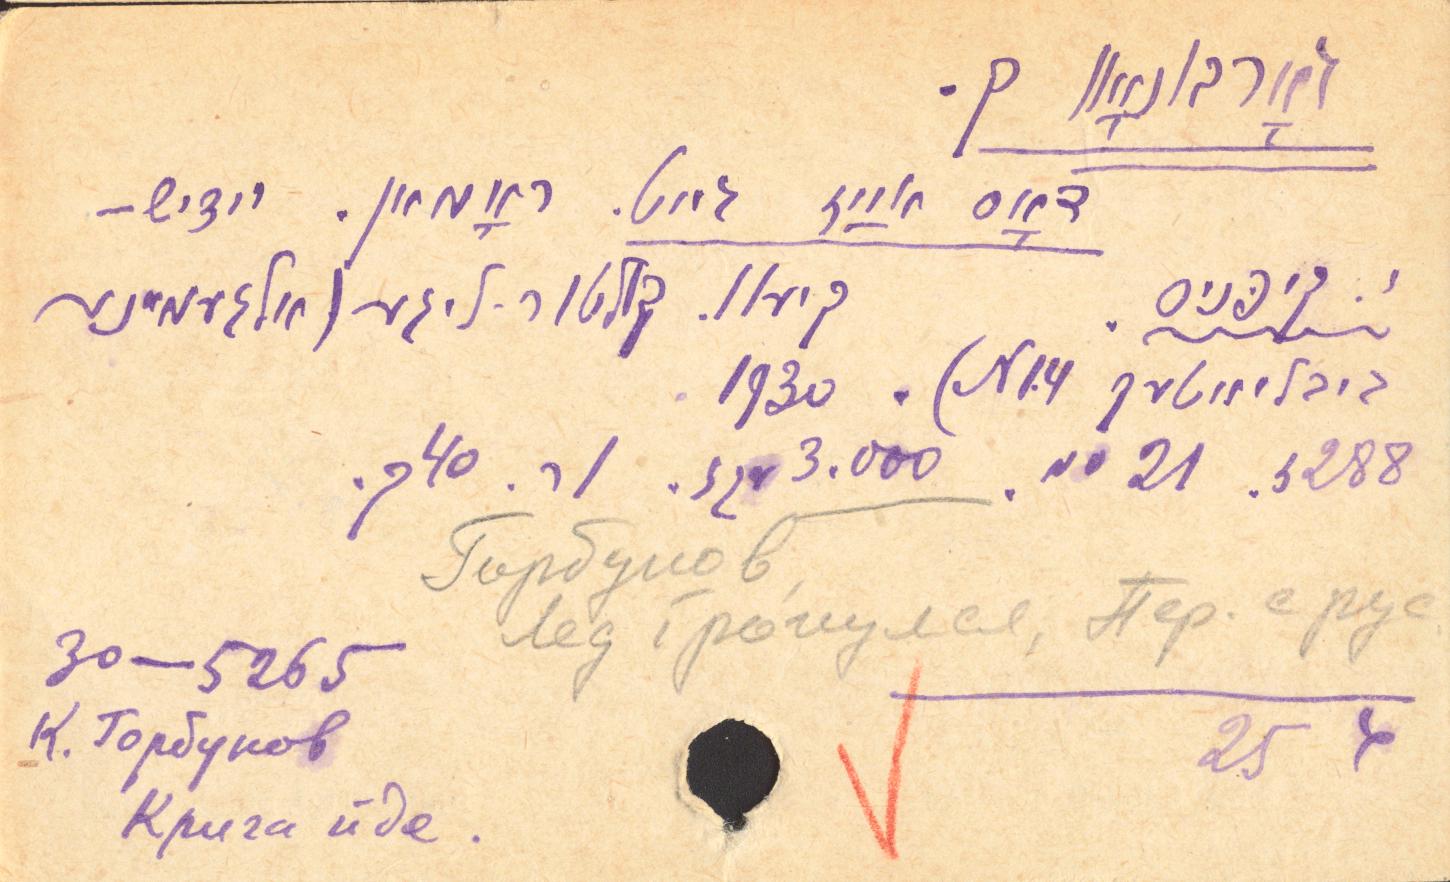 גאָרבונאָוו ק.
דאָס אײַז גייט. ראָמאַן. יידיש –
י. קיפּניס. קיעוו. קולטור-ליגע (אלגעמיינע
ביבליאטעק №1.4). 1930.
288 ז. 21 סמ. 3.000 עקז. 1 ר. 40 ק.
Горбунов,
Лед тронулся, Пер. с рус
30—5265
25
К. Горбунов
Крига йде.